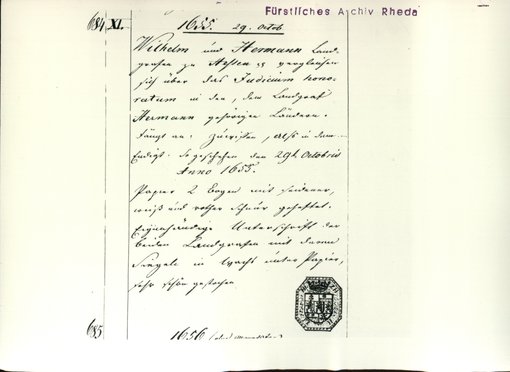 Fürstliches Archiv Rheda
684. XI. 1655. 29. Octob
Wilhelm und Hermann Land-
grafen zu Hessen pp vergleichen
sich über das Judicium hono-
ratum in den, dem Landgraf
Hermann gehörigen Ländern.
Fängt an: Zuwissen, als in dem
Endigt. So geschehen den 29t. Octobris
Anno 1655.
Papier 2 Bogen mit seidener,
weiß und rother Schnur geheftet.
Eigenhändige Unterschrift der
beiden Landgrafen mit deren
Siegeln in Wachs unter Papier,
sehr schön gestochen
685 1656